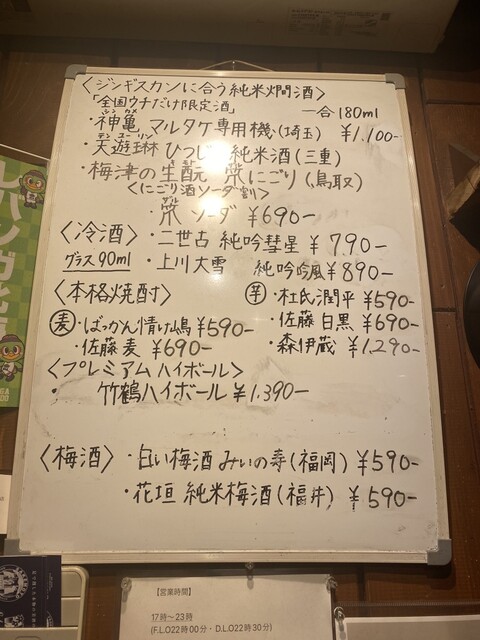 〈ジンギスカンに合う純米燗酒〉
「全国ウチだけ限定酒」 一合180ml
・神亀 マルタケ専用機(埼玉) ¥1,100-
テンユーリン
・天遊琳 ひつじ 純米酒(三重)
・梅津の生酛 にごり(鳥取)
〈にごり酒ソーダ割〉
・ソーダ ¥690-
〈冷酒〉 ・二世古 純吟彗星 ¥790-
グラス90ml ・上川大雪 純吟吟風 ¥890-
〈本格焼酎〉 芋 ・杜氏潤平 ¥590-
麦 ・ばっかん情け嶋 ¥590- ・佐藤白黒 ¥690-
・佐藤 麦 ¥690- ・森伊蔵 ¥1,290-
〈プレミアムハイボール〉
・竹鶴ハイボール ¥1,390-
〈梅酒〉 ・白い梅酒 みいの寿(福岡) ¥590-
・花垣 純米梅酒(福井) ¥590-
【営業時間】
17時～23時
(F.L.O22時00分・D.L.O22時30分)